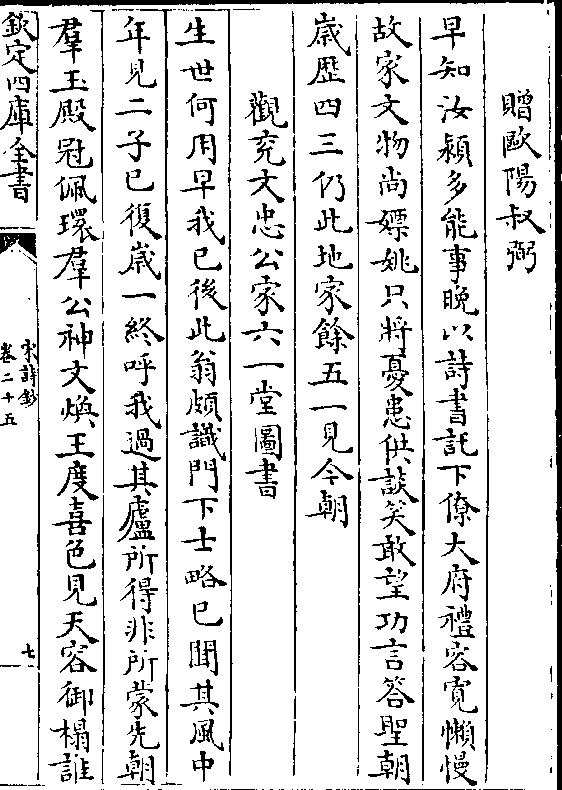 贈歐陽叔弼
早知汝潁多能事晚以詩書託下僚大府禮容寛懶慢
故家文物尚嫖姚只將憂患供談笑敢望功言答聖朝
歳歴四三仍此地家餘五一見今朝
觀兖文忠公家六一堂圖書
生世何用早我已後此翁頗識門下士略已聞其風中
年見二子已復歳一終呼我過其廬所得非所蒙先朝
羣玉殿冠佩環羣公神文煥王度喜色見天容御榻誰
欽定四庫全書
宋詩鈔
卷二十五
七